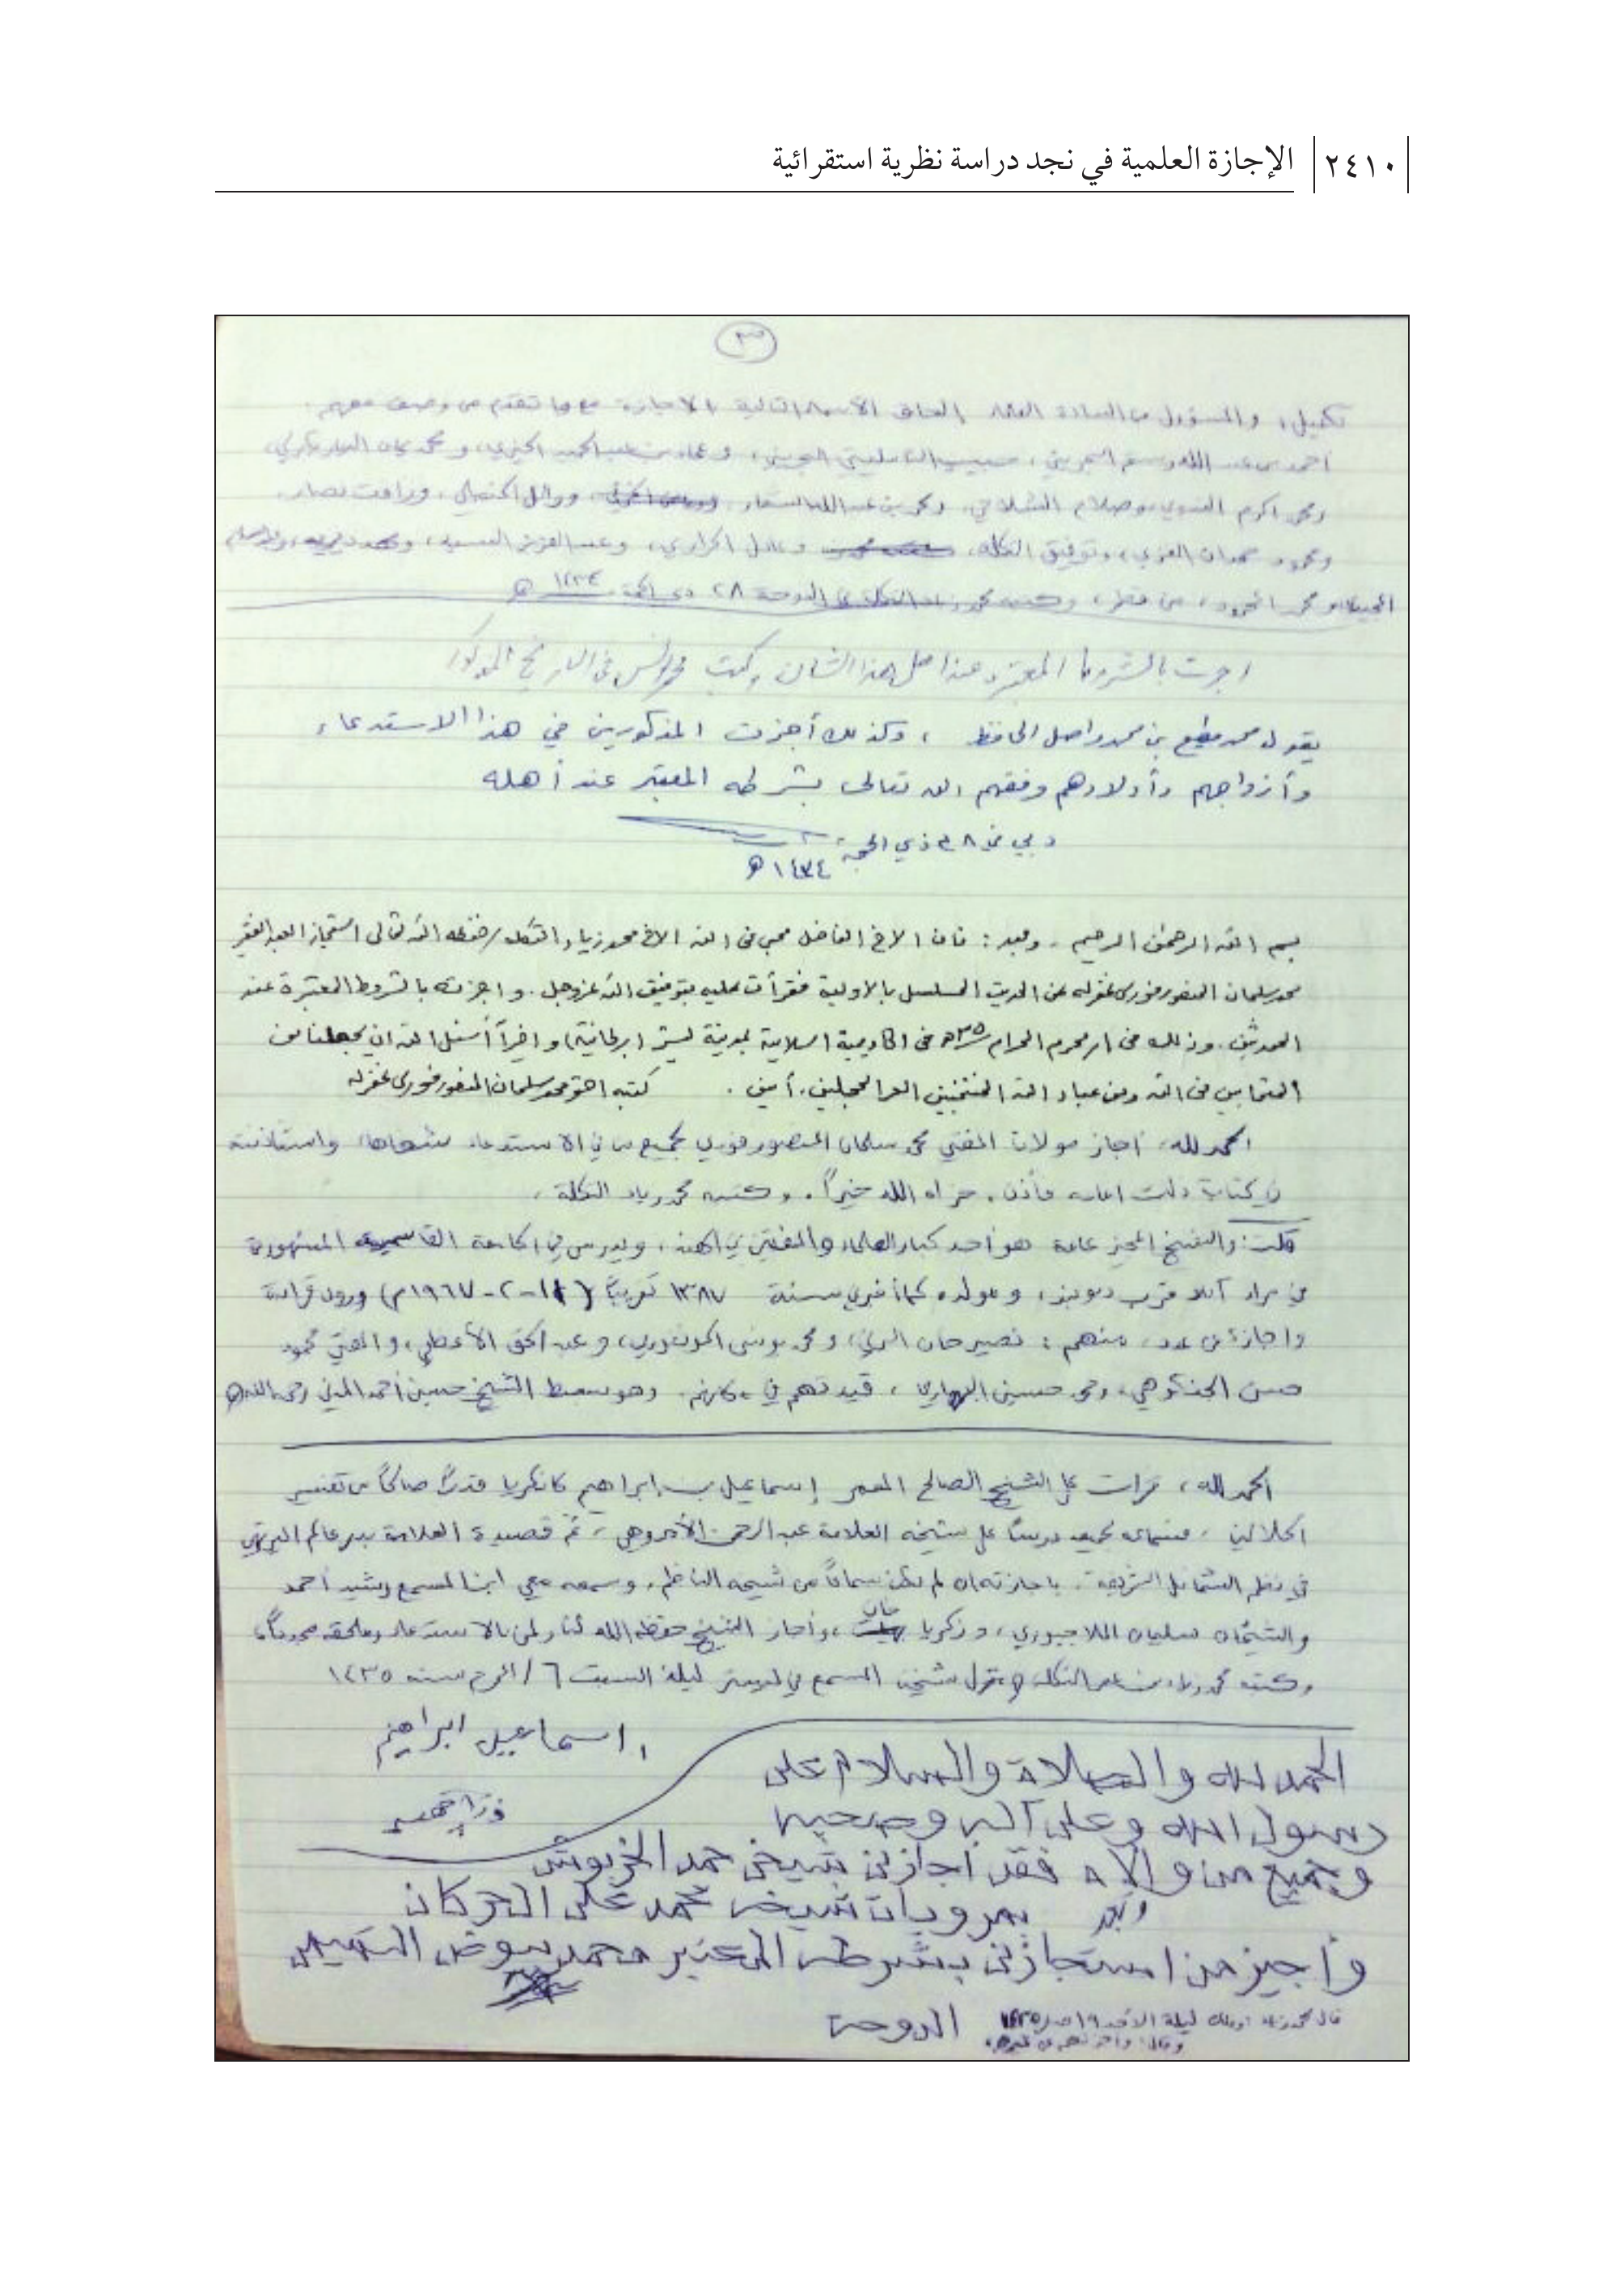 ٢٤١٠ الإجازة العلمية في نجد دراسة نظرية استقرائية
٣
تكميل، والمسؤول من السادة العلماء إلحاق الأسماء التالية بالإجازة مع ما تقدم من وصف معهم:
أحمد بن عبد الله
ومحمد أكرم الندوي، وصلاح الشلاحي، ومحمد بن عبد الله الشعار، ووائل الحنبلي، ورأفت نصار،
ومحمود حمدان الغزي، وتوفيق التكلة، وعادل الحرازي، وعبد العزيز
ومحمد المحمود، من قطر، وكتبه محمد زياد التكلة في الدوحة ٢٨ ذي الحجة ١٤٣٤ هـ
اجزت بالشروط المعتبرة عند اهل هذا الشان وكتب محمد يونس في التاريخ المذكور
يقول محمد مطيع بن محمد واصل الحافظ ، وكذلك أجزت المذكورين في هذا الاستدعاء
وأزواجهم وأولادهم وفقهم الله تعالى بشرطه المعتبر عند أهله
دبي في ٢٨ ذي الحجة
١٤٣٤ هـ
بسم الله الرحمن الرحيم . وبعد : فان الاخ الفاضل محبي في الله الاخ محمد زياد التكلة حفظه الله تعالى استجاز العبد الفقير
محمد سلمان المنصورفوري غفر له عن الحديث المسلسل بالاولية فقرأت عليه بتوفيق الله عز وجل . واجزته بالشروط المعتبرة عند
المحدثين . وذلك في محرم الحرام ١٤٣٥هـ في اكاديمية اسلامية بمدينة ليستر (برطانية) واخرا أسئل الله ان يجعلنا من
المتحابين في الله ومن عباد الله المنتخبين الغر المحجلين . أمين . كتبه احقر محمد سلمان المنصورفوري غفر له
الحمد لله، أجاز مولانا المفتي محمد سلمان المنصورفوري بجميع من في الاستدعاء شفاها، واستأذنته
في كتابة ذلك فأذن، جزاه الله خيراً . وكتبه محمد زياد التكلة .
قلت: والشيخ المجيز عامة هو أحد كبار العلماء والمفتين في الهند، ويدرس في الجامعة القاسمية المشهورة
في مراد آباد قرب ديوبند، ومولده كما أخبرني سنة ١٣٨٧ تقريباً ( ١١-٢-١٩٦٧م) وروى قراءة
وإجازة عن عدد، منهم : نصير خان البرني، ومحمد يونس الجونفوري، وعبد الحق الأعظمي، والمفتي محمود
حسن الجنكوهي، ومحمد حسين البهاري ، قيدتهم في مكانهم. وهو سبط الشيخ حسين أحمد المدني رحمه الله
الحمد لله، قرأت على الشيخ الصالح المعمر إسماعيل بن إبراهيم كانكريا قدراً صالحاً من تفسير
الجلالين ، على شيخه العلامة عبد الرحمن الأمروهي ، ثم قصيدة العلامة بدر عالم الميرتهي
في نظم الشمائل الشريفة . بإجازته إن لم يكن سماعاً من شيخه الناظم، وسمعه معي ابنا المسمع رشيد أحمد
والشيخان سليمان اللاجبوري، وزكريا خان، وأجاز الشيخ حفظه الله لنا ولمن بالاستدعاء وملحقه
وكتبه محمد زياد بن عمر التكلة في منزل شيخنا المسمع في ليستر ليلة السبت ٦ /المحرم سنة ١٤٣٥
اسماعيل ابراهيم
الحمد لله والصلاة والسلام على
رسول الله وعلى آله وصحبه
وجميع من والاه فقد أجازني شيخي حمد الخربوش
وبعد بمرويات شيخه محمد علي الحركان
وأجيز من استجازني بشرطه المعتبر محمد
قال محمد زياد: وذلك ليلة الأحد ١٩ صفر ١٤٣٥ الدوحة